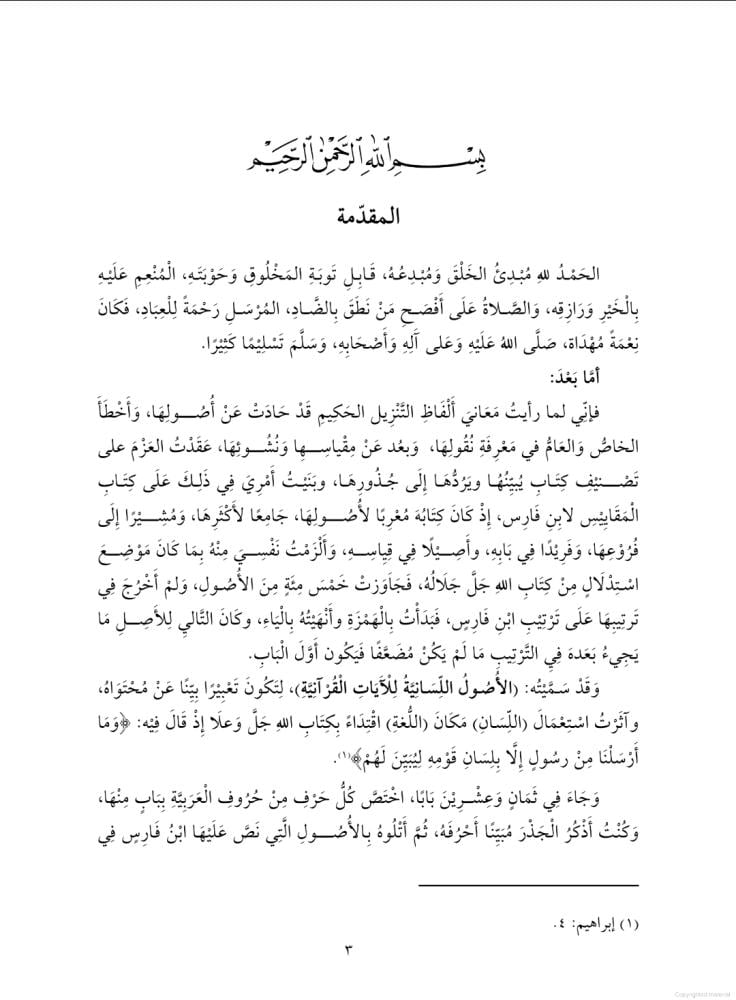 بِسْمِ اللهِ الرَّحْمٰنِ الرَّحِيْمِ
المقدّمة
الحَمْدُ للهِ مُبْدِئُ الخَلْقَ وَمُبْدِعُهُ، قَابِلِ تَوبَةِ المَخْلُوقِ وَحَوْبَتَهِ، الْمُنْعِمِ عَلَيْهِ
بِالْخَيْرِ وَرَازِقِه، وَالصَّلاةُ عَلَى أَفْصَحِ مَنْ نَطَقَ بِالضَّادِ، المُرْسَلِ رَحْمَةً لِلْعِبَادِ، فَكَانَ
نِعْمَةً مُهْدَاة، صَلَّى اللهُ عَلَيْهِ وَعَلى آلِهِ وَأَصْحَابِهِ، وَسَلَّمَ تَسْلِيْمًا كَثِيْرًا.
أمَّا بَعْدَ:
فإنّي لما رأيتُ مَعَانيَ أَلْفَاظِ التَّنْزِيل الحَكِيمِ قَدْ حَادَتْ عَنْ أُصُولِهَا، وَأَخْطَأَ
الخاصُّ وَالعَامُّ في مَعْرِفَةِ نُقُولِهَا، وَبعُد عَنْ مِقْيَاسِها وَنُشُوئِهَا، عَقَدْتُ العَزْمَ على
تَصْنِيْفِ كِتَابٍ يُبيِّنُهُا ويَرُدُّهَا إلَى جُذُورِهَا، وبنَيْتُ أَمْرِيَ فِي ذَلِكَ عَلَى كِتَابِ
الْمَقَايِيْسِ لابنِ فَارِس، إذْ كَانَ كِتَابُهُ مُعْرِبًا لأُصُولِهَا، جَامِعًا لأَكْثَرِهَا، وَمُشِيْرًا إلَى
فُرُوْعِهَا، وَفَرِيْدًا فِي بَابِهِ، وأَصِيْلًا فِي قِيَاسِهِ، وَأَلْزَمْتُ نَفْسِيَ مِنْهُ بِمَا كَانَ مَوْضِعَ
اسْتِدْلَالٍ مِنْ كِتَابِ اللهِ جَلَّ جَلَالُهُ، فَجَاوَزتْ خَمْسَ مِئَةٍ مِنَ الأُصُولِ، وَلمْ أَخْرُجْ فِي
تَرتِيبِهَا عَلَى تَرْتِيْبِ ابْنِ فَارِسٍ، فَبَدَأْتُ بِالْهَمْزَةِ وأَنْهَيْتُهُ بِالْيَاءِ، وكَانَ التَّالي لِلأَصِلِ مَا
يَجِيءُ بَعْدَهَ فِي التَّرْتِيبِ مَا لَمْ يَكُنْ مُضَعَّفًا فَيَكُون أَوَّلَ الْبَابِ.
وَقَدْ سَمَّيْتُه: (الأُصُولُ اللِّسَانِيَّةُ لِلْآيَاتِ الْقُرْآنِيَّةِ)، لِتَكُونَ تَعْبِيْرًا بيِّنًا عَنْ مُحْتَوَاهُ،
وآثَرْتُ اسْتِعْمَالَ (اللِّسَانِ) مَكَانَ (اللُّغةِ) اقْتِدَاءً بِكِتَابِ اللهِ جَلَّ وَعلَا إذْ قَالَ فِيْه: ﴿وَمَا
أَرْسَلْنَا مِنْ رسُولٍ إلَّا بِلِسَانِ قَوْمِهِ لِيُبَيِّنَ لَهُمْ﴾(١).
وَجَاءَ فِي ثَمَانٍ وَعِشْرِيْنَ بَابًا، اخْتَصَّ كُلُّ حَرْفٍ مِنْ حُرُوفِ الْعَرَبيَّةِ بِبَابٍ مِنْهَا،
وَكُنْتُ أَذْكُرُ الْجَذْرَ مُبَيِّنًا أَحْرُفَهُ، ثُمَّ أَتْلُوهُ بِالأُصُولِ الَّتِي نَصَّ عَلَيْهَا ابْنُ فَارِسٍ فِي
(١) إبراهيم: ٤.
٣
Copyrighted material